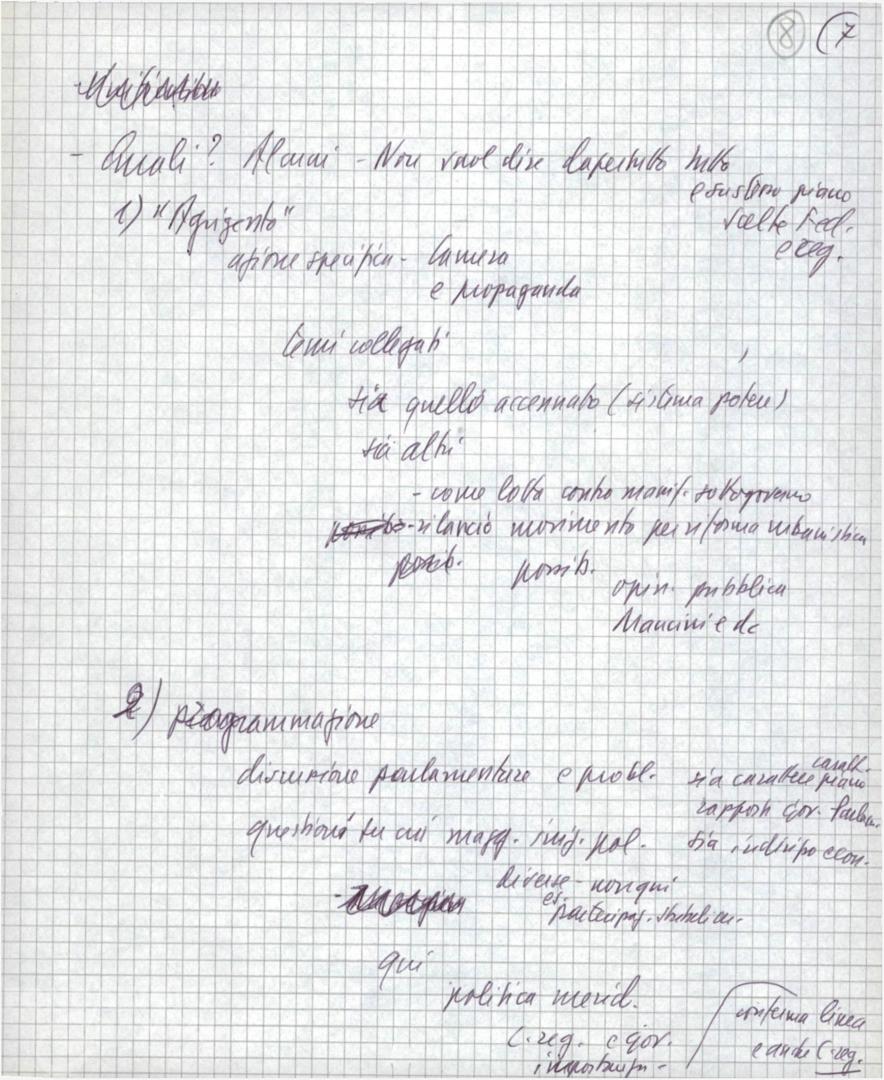 8 (7
- Quali? Alcuni - Non vuol dire dapertutto tutto
e sustino piano
scelte Fed.
e reg.
1) "Agrigento"
azione specifica - Camera
e propaganda
temi collegati
sia quello accennato (sistema potere)
sia altri
- come lotta contro manif. sottogoverno
- rilancio movimento per riforma urbanistica
possib. possib.
opin. pubblica
Mancini e dc
2) programmazione
discussione parlamentare e probl. sia carattere piano
caratt.
rapporti gov. Parlam.
questioni su cui magg. sig. pol. sia indirizzo econ.
diverse - non qui
es. partecipaz. statali
qui
politica merid.
C. reg. e gov.
importanza -
conferma linea
e anche C. reg.